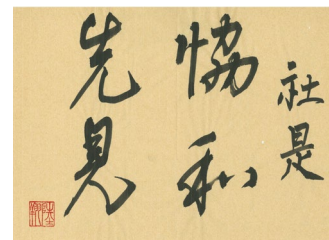 社是
恊和
先見